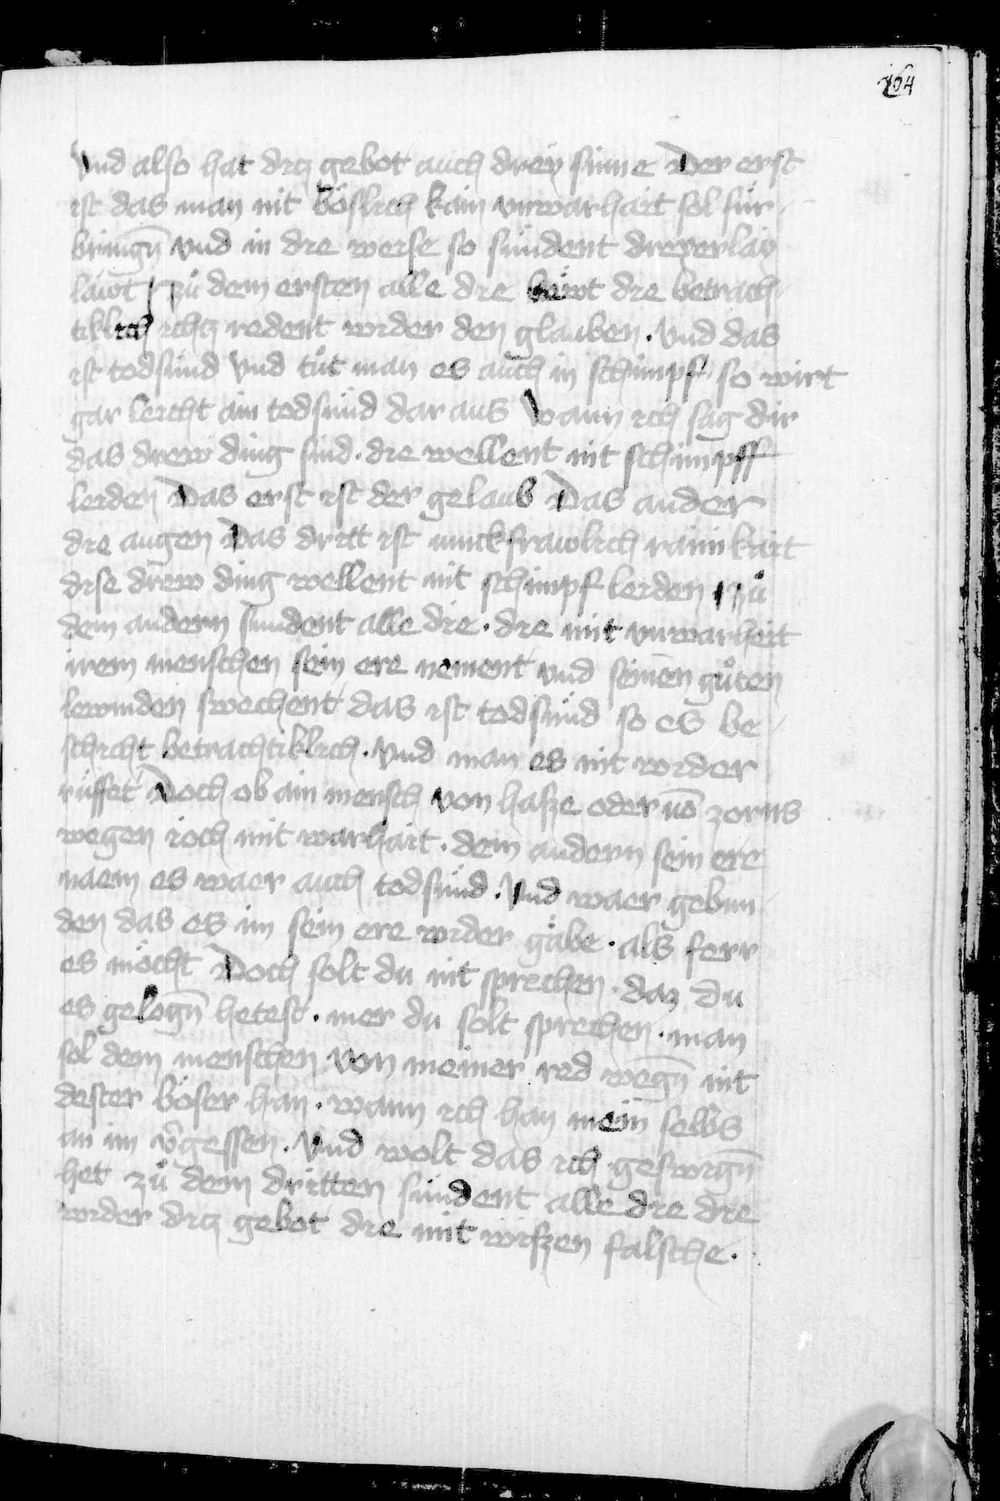 164
Vnd also hat ditz gebot auch dreÿ sinne Der erst
ist das man nit böslich kain vnwarhait sol für
bringn̄ vnd in die weise so sündent dreyerlaÿ
läwt zů dem ersten alle die läwt die betrach
tiklich ichtz redent wider den glauben · Vnd das
ist todsünd Vnd tůt man es auch in schimpf so wirt
gar leicht ain todsünd dar aus Wann ich sag dir
das drew ding sind · die wellent nit schimpff
leiden Das erst ist der gelaub Das ander
die augen Das dritt ist iunckfrawlich rainikait
dise drew ding wellent nit schimpf leiden zů
dem andern sundent alle die · die mit vnwarheit
irem menschen sein ere nement vnd seinen gůten
lewmden swechent das ist todsünd so es be
schicht betrachtiklich · Vnd man es nit wider
rüffet Doch ob ain mensch von hasze oder vō zorns
wegen ioch mit warhait · dem andern sein ere
naem es waer auch todsünd · Vnd waer gebun
den das es im sein ere wider gäbe · als ferr
es möcht Doch solt du nit sprechen · daz du
es gelogn̄ hetest · mer du solt sprechen · man
sol dem menschen von meiner red wegn̄ nit
dester böser han · wann ich han mein selbs
an im v̄gessen · Vnd wolt das ich geswign̄
het zů dem dritten sündent alle die die
wider ditz gebot die mit wiszen falsche ·